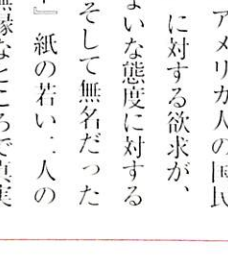 アメリカ人の国民
に対する欲求が、
いな態度に対する
そして無名だった
』紙の若い二人の
無縁なところで真実